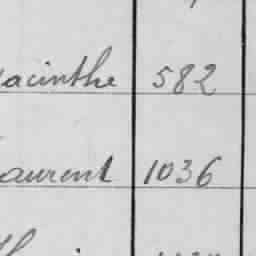 acinthe 582
aurent 1036